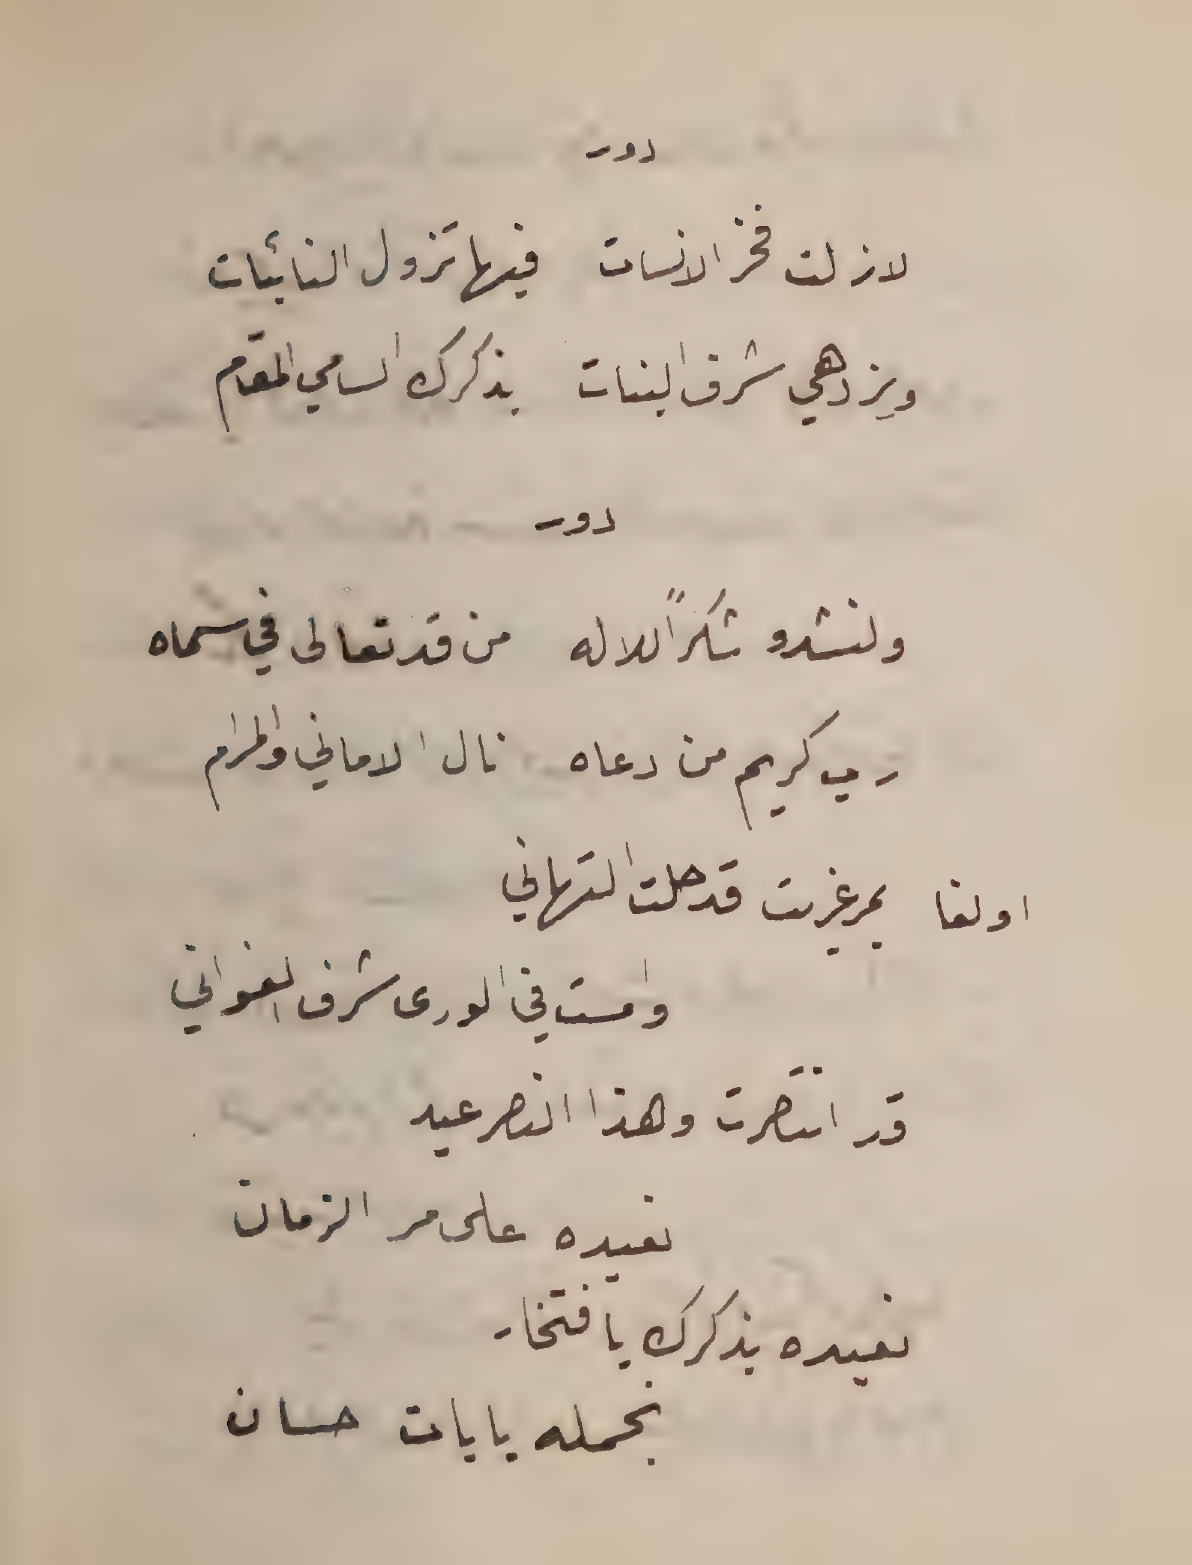 دور
لازلت فخر الانسات فيها تزول النائبات
ويزدهي شرف البنات بذكرك السامي المقام
دور
ولنشدو شكراً للاله من قد تعالى في سماه
رب كريم من دعاه نال الاماني والمرام
اولغا بمرغريت قد حلت التهاني
وامست في الورى شرف الغواني
قد انتصرت وهذا النصر عيد
نعيده على مر الزمان
نعيده بذكرك يا فتخار
نجمله بايات حسان